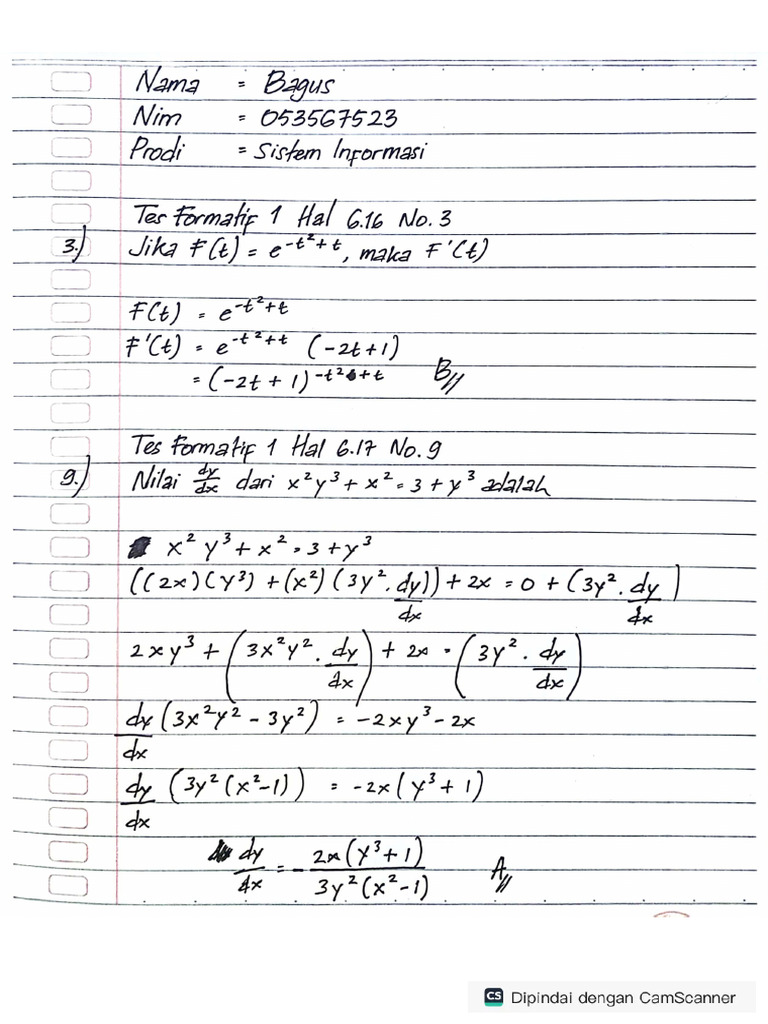 Nama = Bagus
Nim = 053567523
Prodi = Sistem Informasi
Tes Formatif 1 Hal 6.16 No. 3
3.) Jika F(t) = e^{-t²+t}, maka F'(t)
F(t) = e^{-t²+t}
F'(t) = e^{-t²+t} (-2t+1)
= (-2t + 1)^{-t²+t} B//
Tes Formatif 1 Hal 6.17 No. 9
9.) Nilai dy/dx dari x²y³ + x² = 3 + y³ adalah
x² y³ + x² = 3 + y³
((2x)(y³) + (x²)(3y². dy/dx)) + 2x = 0 + (3y². dy/dx)
2xy³ + (3x²y². dy/dx) + 2x = (3y². dy/dx)
dy/dx (3x²y² - 3y²) = -2xy³ - 2x
dy/dx (3y²(x²-1)) = -2x(y³+1)
dy/dx = - 2x(y³+1)/3y²(x²-1) A//
CS Dipindai dengan CamScanner